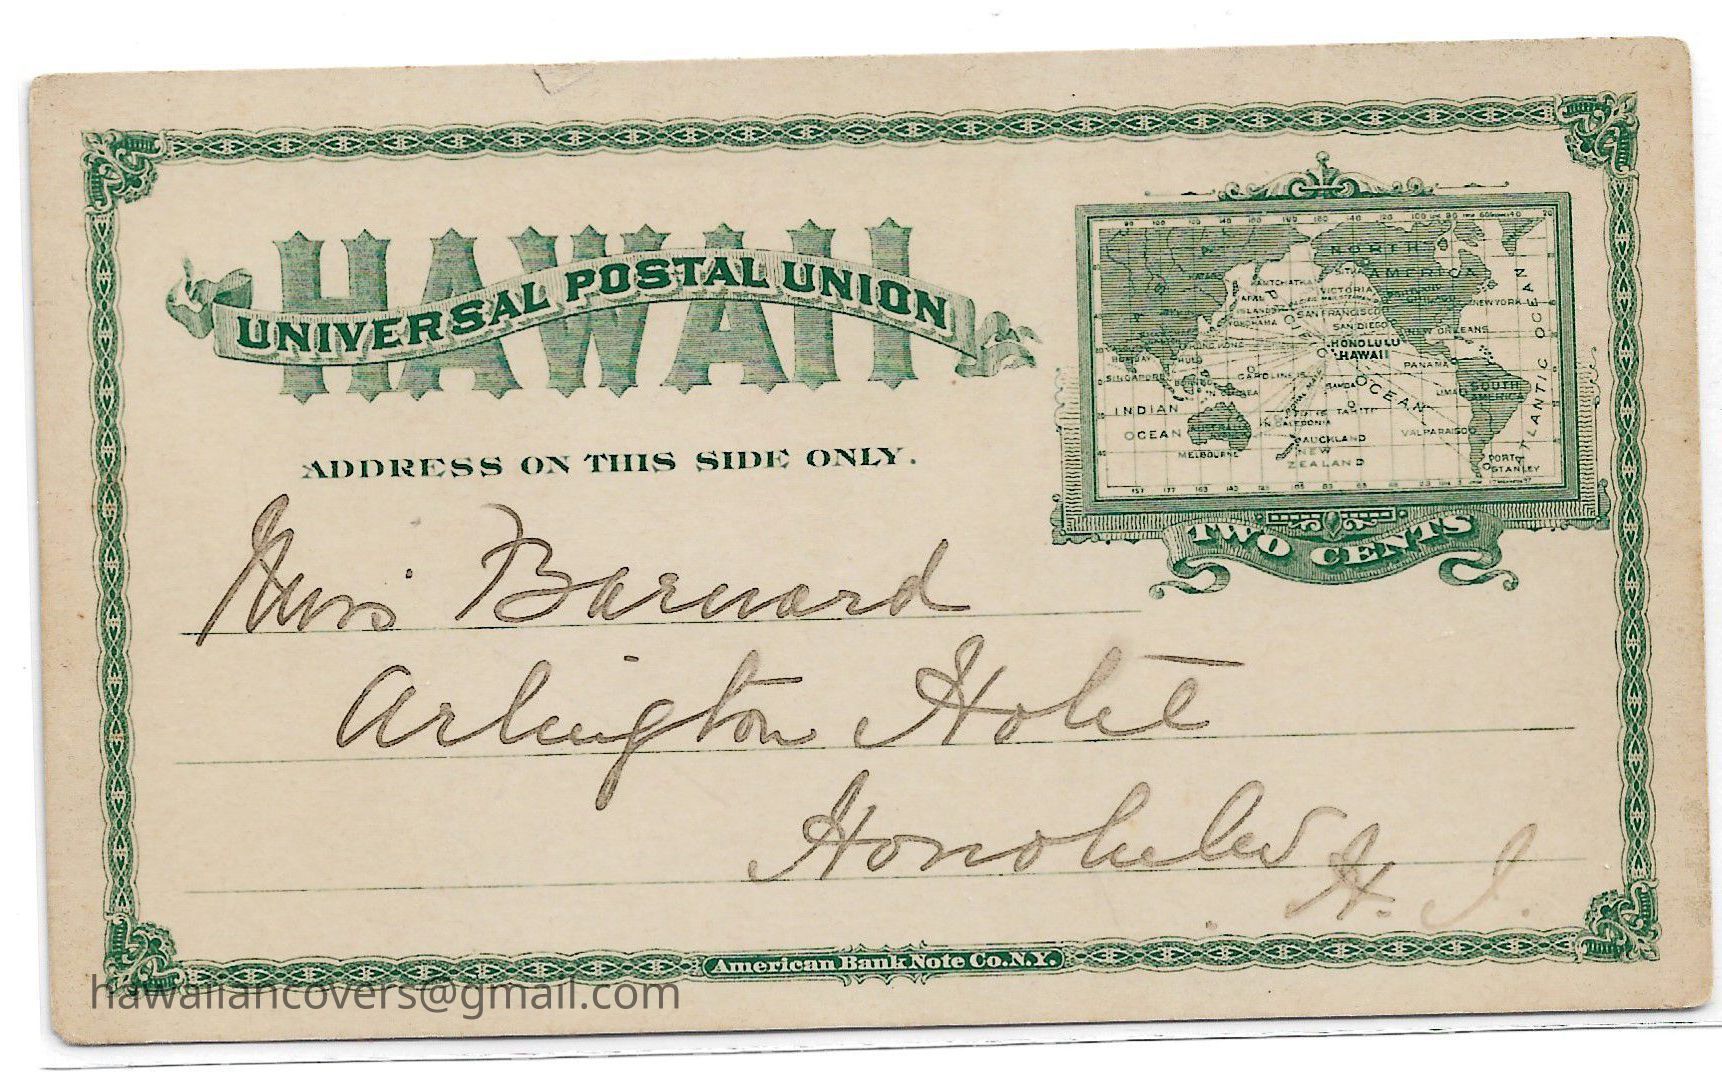 HAWAII
UNIVERSAL POSTAL UNION
ADDRESS ON THIS SIDE ONLY.
Miss Barnard
Arlington Hotel
Honolulu H. I.
NORTH
AMERICA
KAMTCHATKA
VICTORIA
SAN FRANCISCO
YOKOHAMA
SAN DIEGO
NEW YORK
NEW ORLEANS
HONG KONG
HONOLULU
HAWAII
BOMBAY
PANAMA
SINGAPORE
CAROLINE IS.
SAMOA
PACIFIC OCEAN
LIMA
SOUTH
AMERICA
ATLANTIC OCEAN
INDIAN
OCEAN
AUSTRALIA
TAHITI
N. CALEDONIA
AUCKLAND
VALPARAISO
MELBOURNE
NEW
ZEALAND
PORT
STANLEY
TWO CENTS
American Bank Note Co. N.Y.
hawaiiancovers@gmail.com